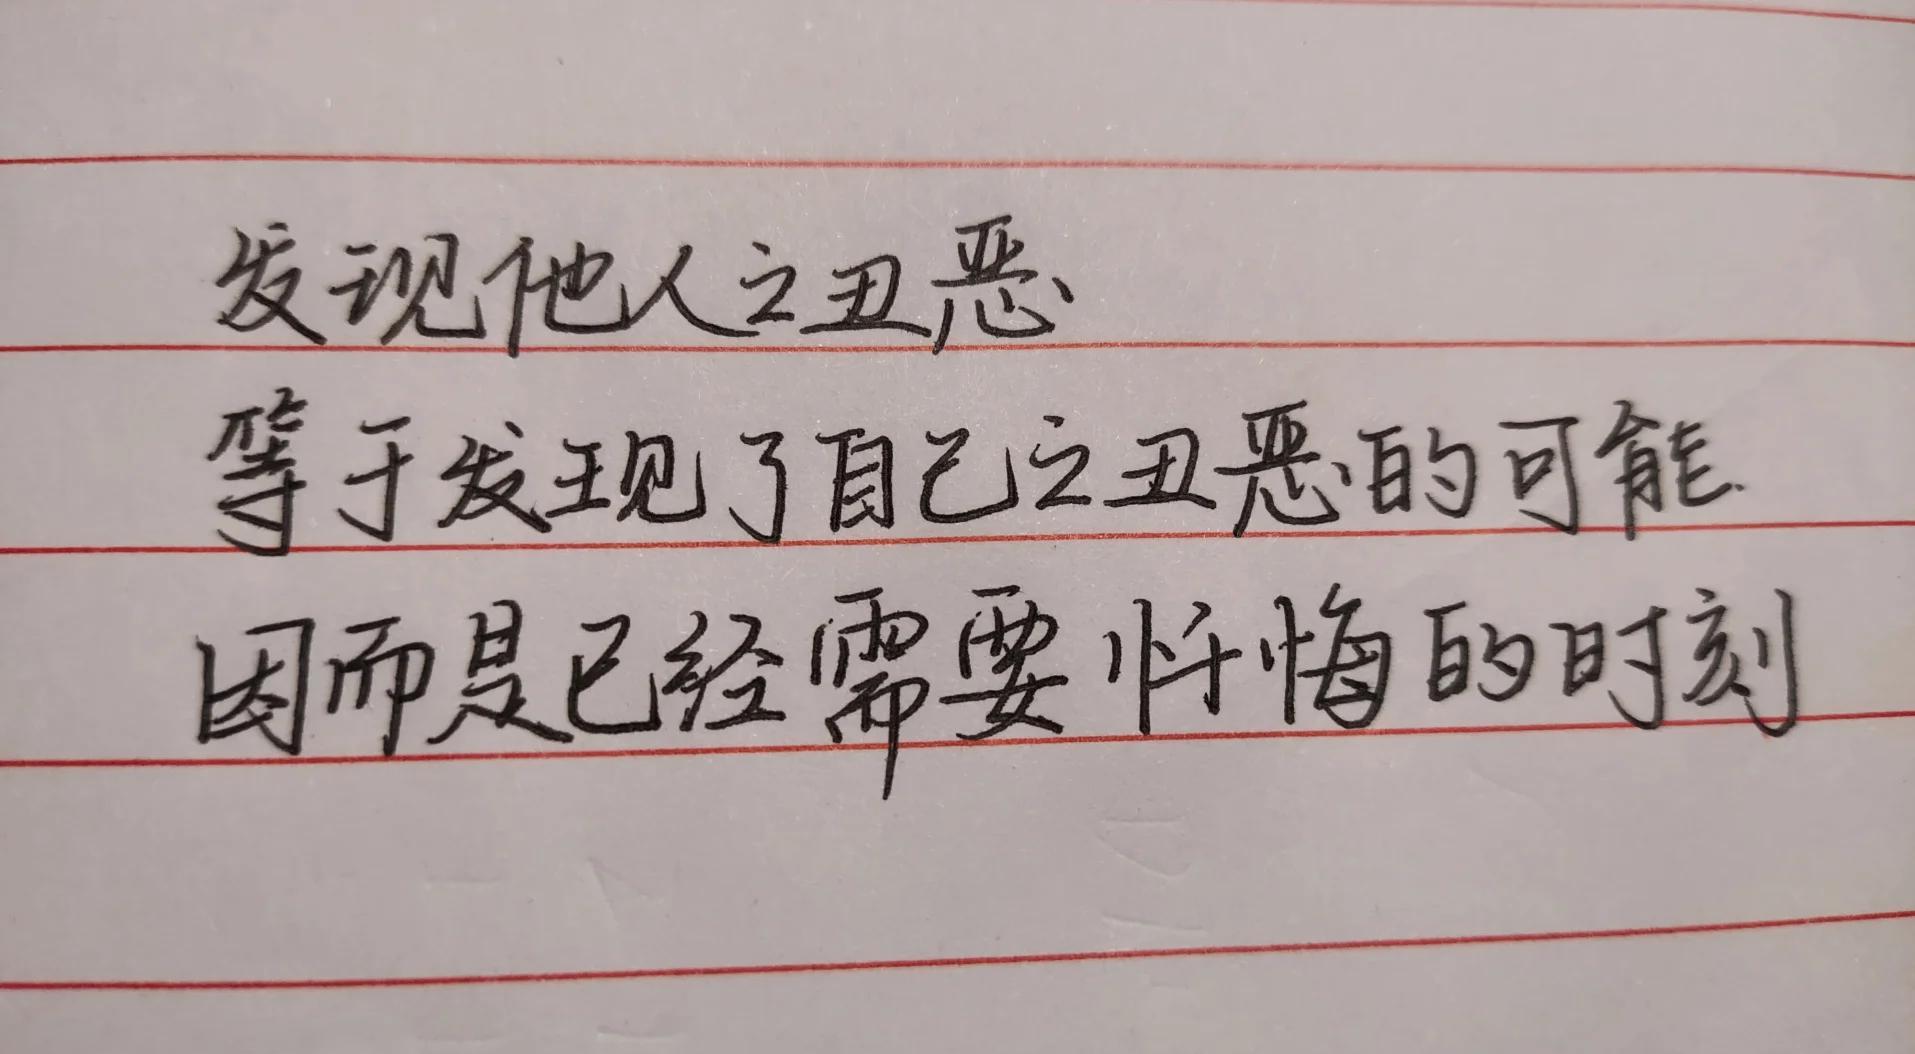 发现他人之丑恶
等于发现了自己之丑恶的可能
因而是已经需要忏悔的时刻